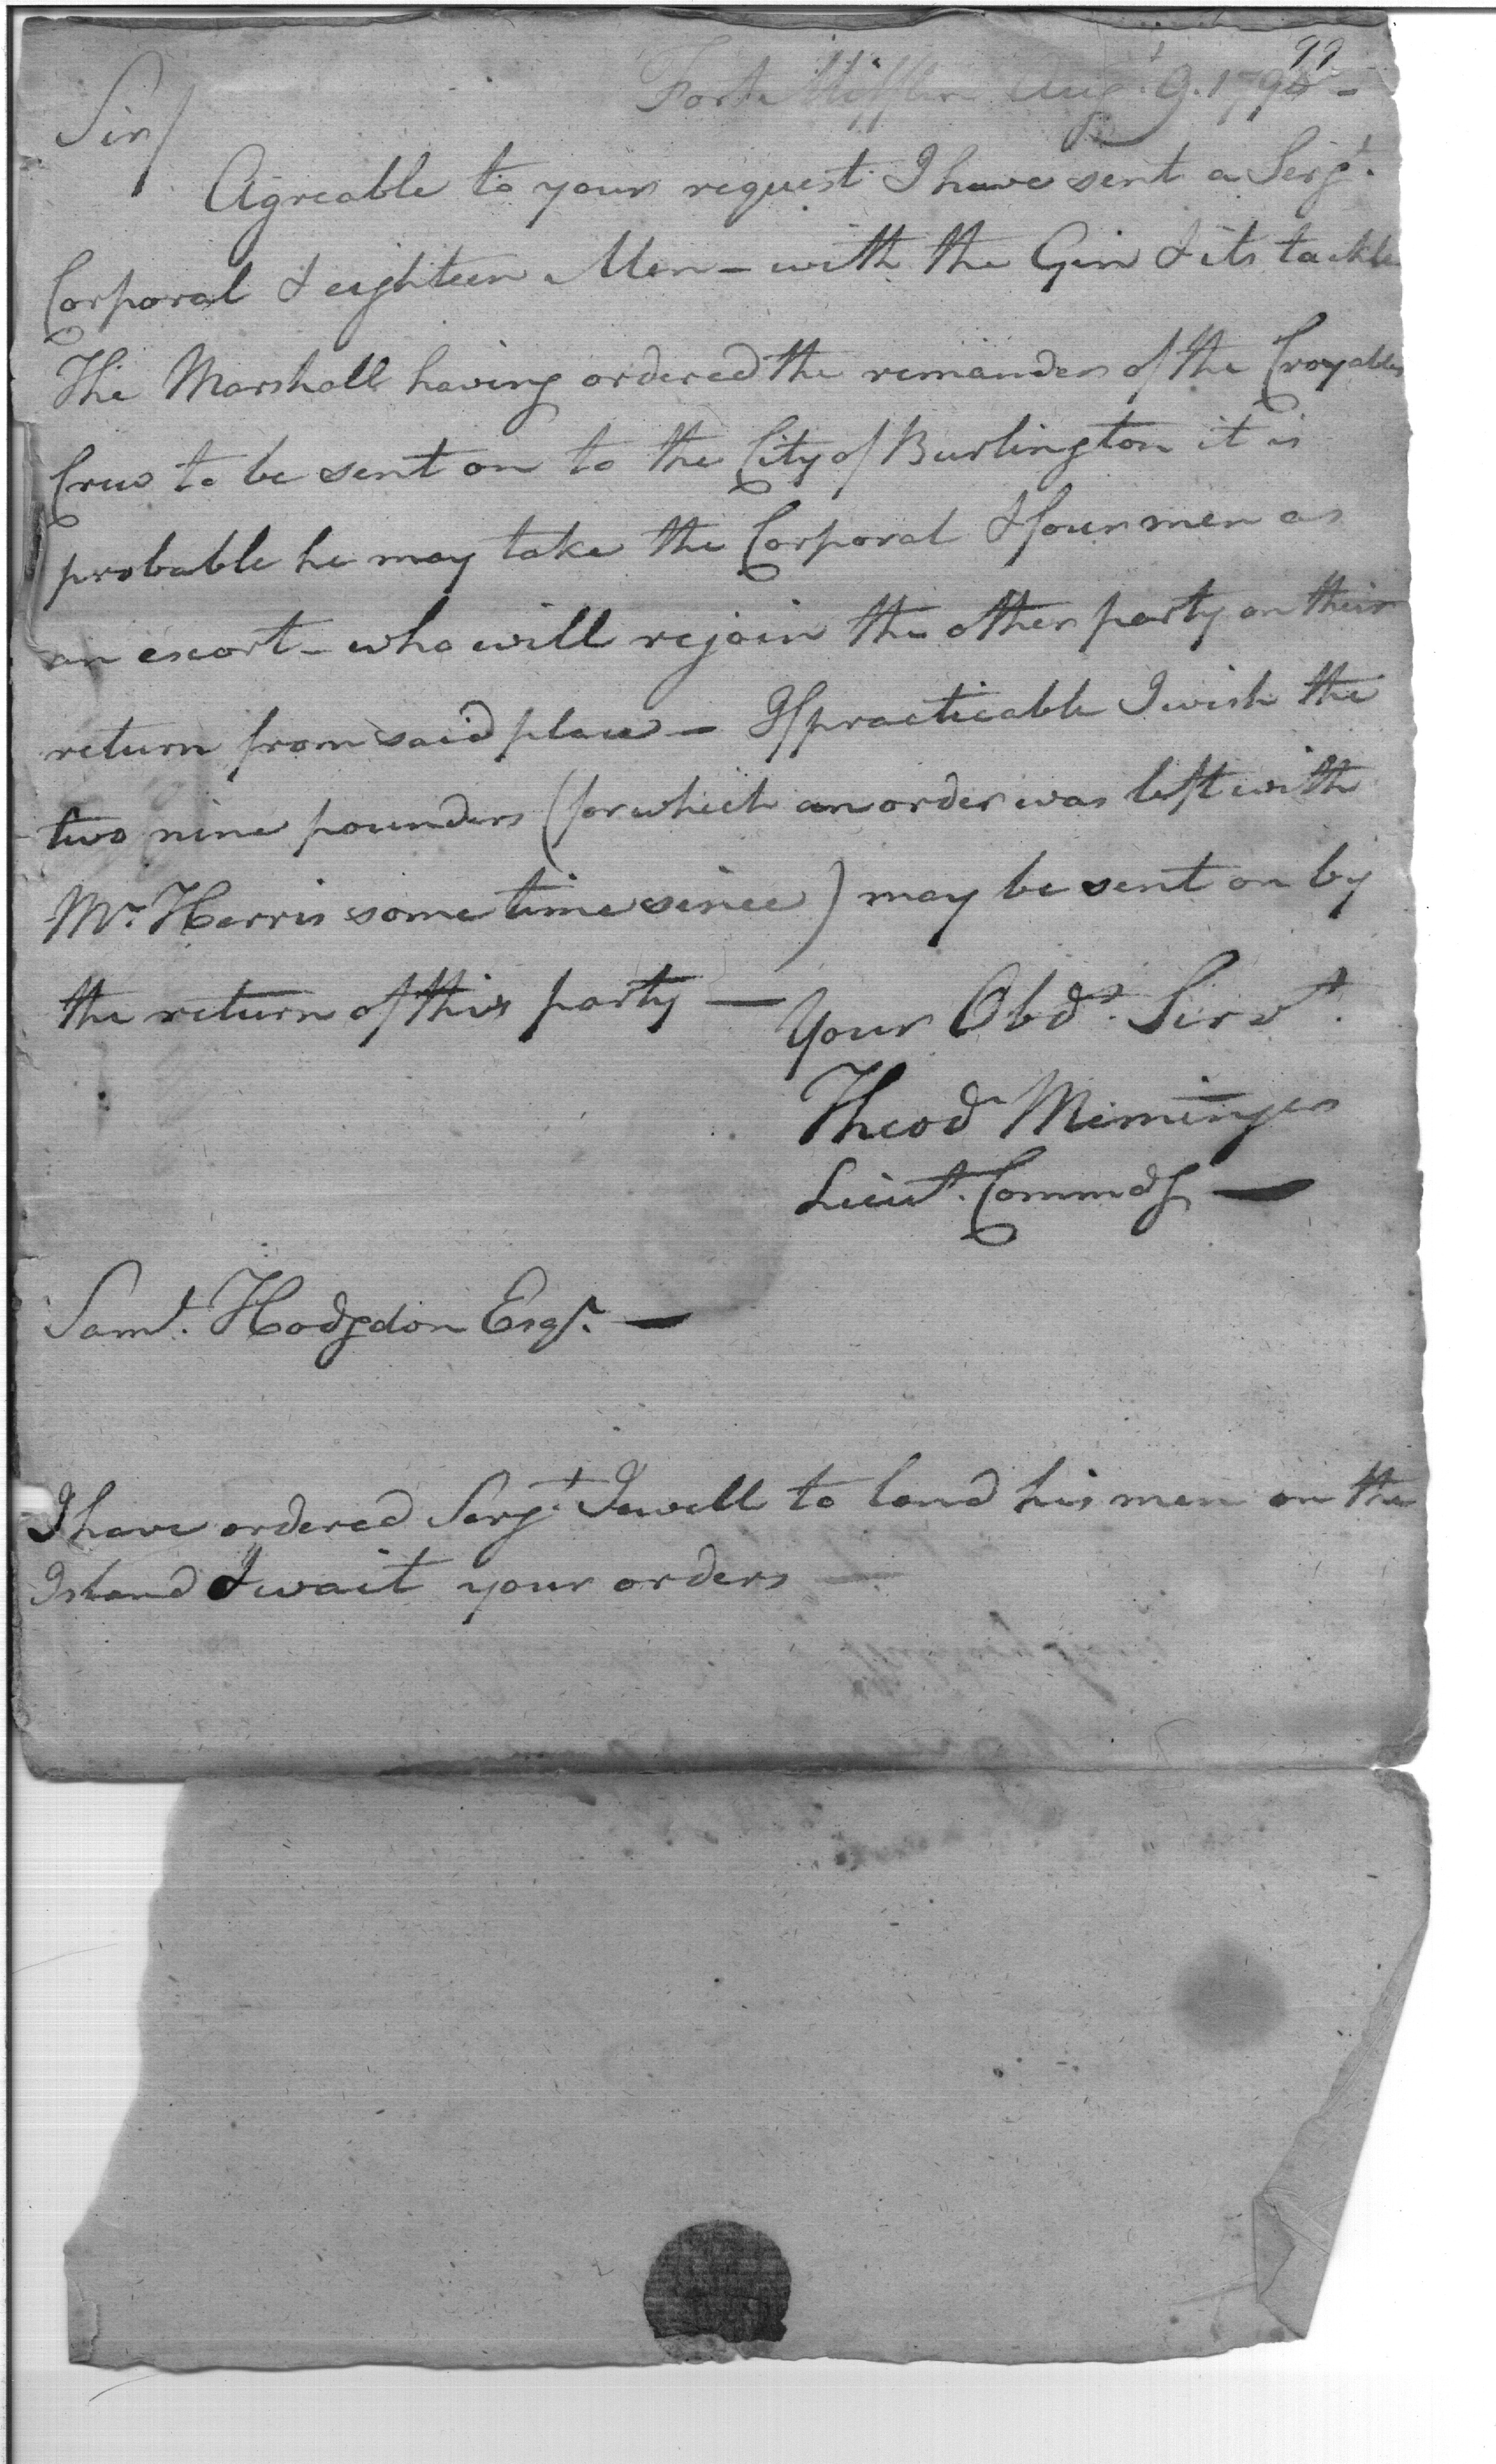 99
Fort Mifflin Augt. 9. 1798 -
Sir/
Agreable to your request I have sent a Sergt.
Corporal & eighteen Men - with the Gin & its tackle
The Marshall having ordered the remainder of the Croyables
Crew to be sent on to the City of Burlington it is
probable he may take the Corporal & four men as
an escort - who will rejoin the other party on their
return from said place - If practicable I wish the
two nine pounders (for which an order was left with
Mr. Harris some time since) may be sent on by
the return of this party — Your Obdt. Servt.
Theod Meminger
Lieut. Commdg —
Saml. Hodgdon Esqr. —
I have ordered Sergt. Jewell to land his men on the
Island & wait your orders —